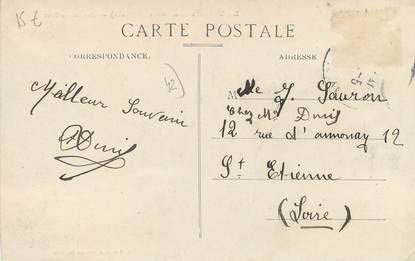 15 €
CARTE POSTALE
CORRESPONDANCE.
ADRESSE
42
Meilleur Souvenir
Denis
Melle J. Sauron
Chez Mr Denis
12 rue d'annonay 12
St Etienne
(Loire)